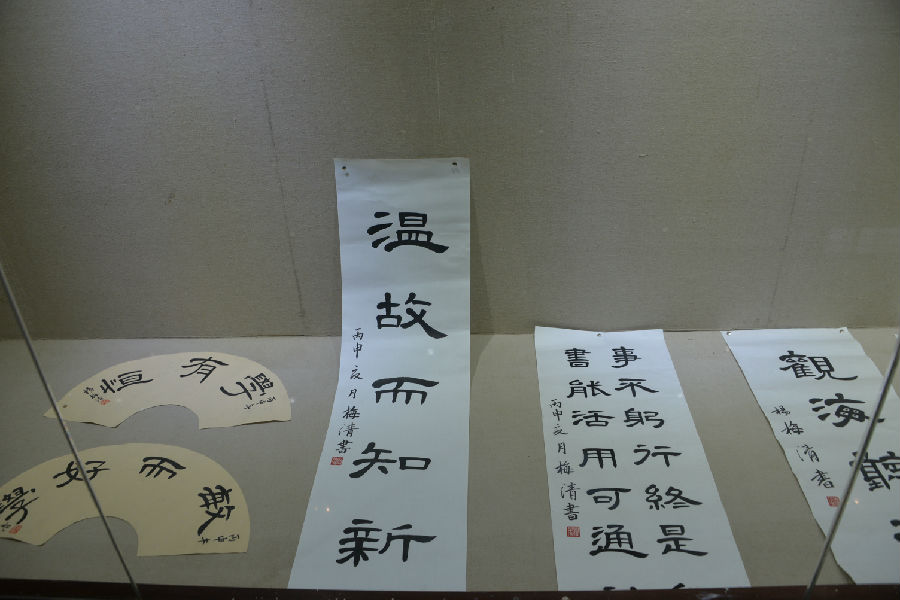 學有恒
敏而好學
温故而知新
丙申亥月梅清書
事不躬行終是
書能活用可通
丙申亥月梅清書
觀海聽
楊梅清書